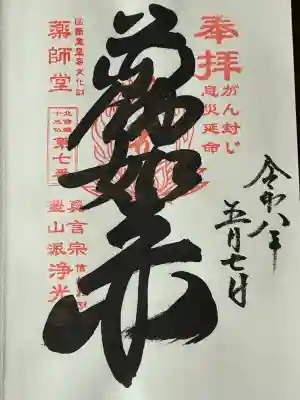 奉拝
がん封じ
息災延命
令和八年
五月七日
薬師如来
国指定重要文化財
薬師堂
北信濃
十三仏
第七番
真言宗
豊山派
浄光